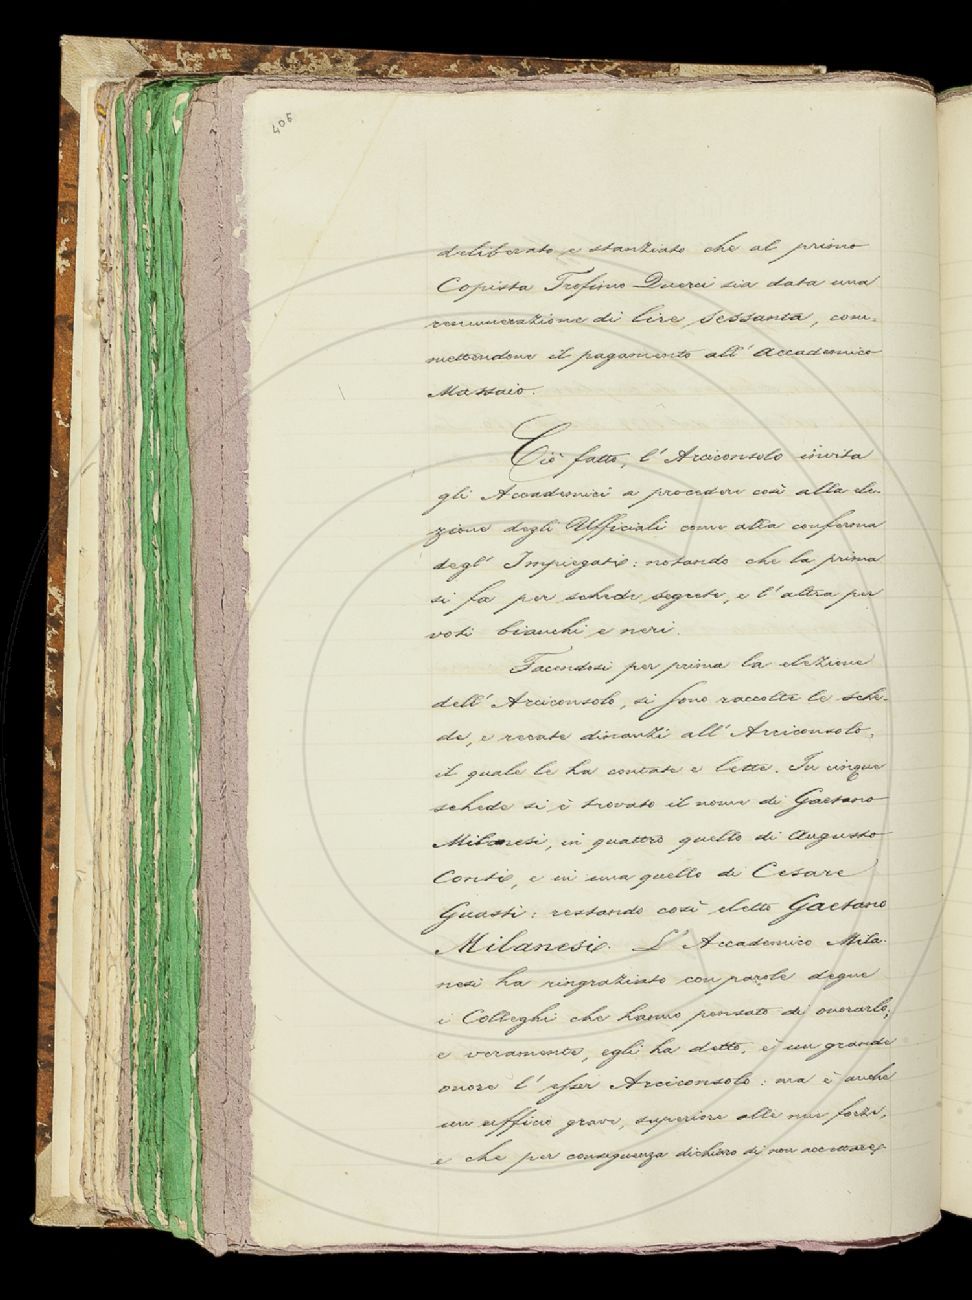 406
deliberato, e stanziato che al primo
Copista Trofimo Querci sia data una
remunerazione di lire sessanta, com-
mettendone il pagamento all' Accademico
Massaio.
Ciò fatto, l' Arciconsolo invita
gli Accademici a procedere così alla ele-
zione degli Ufficiali come alla conferma
degl' Impiegati: notando che la prima
si fa per schede segrete, e l' altra per
voti bianchi e neri.
Facendosi per prima la elezione
dell' Arciconsolo, si sono raccolte le sche-
de, e recate dinanzi all' Arciconsolo,
il quale le ha contate e lette. In cinque
schede si è trovato il nome di Gaetano
Milanesi, in quattro quello di Augusto
Conti, e in una quello di Cesare
Guasti: restando così eletto Gaetano
Milanesi. L' Accademico Mila-
nesi ha ringraziato con parole degne
i Colleghi che hanno pensato di onorarlo;
e veramente, egli ha detto, è un grande
onore l' esser Arciconsolo: ma è anche
un ufficio grave, superiore alle mie forze,
e che per conseguenza dichiaro di non accettare